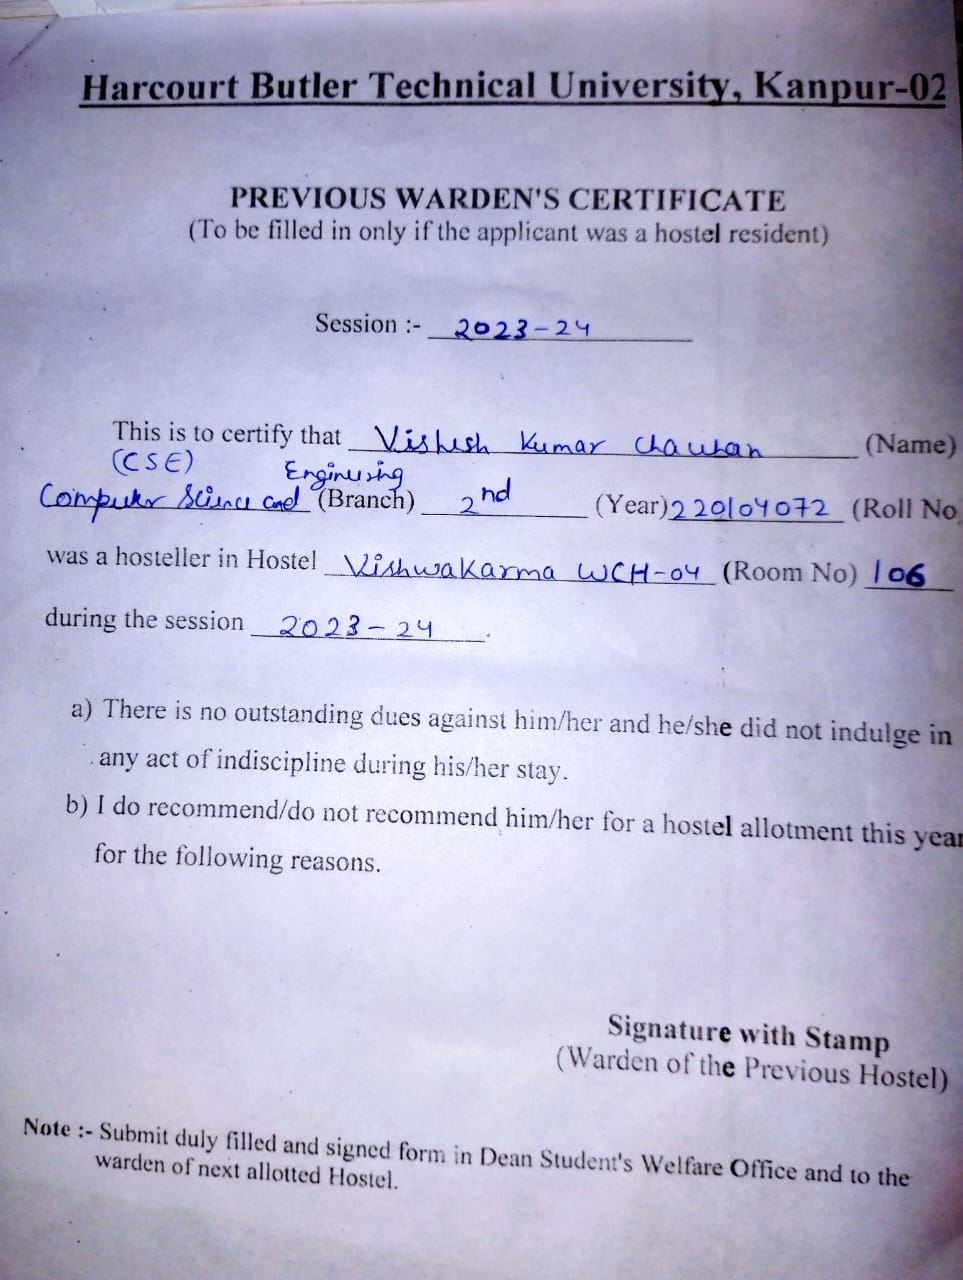 Harcourt Butler Technical University, Kanpur-02
PREVIOUS WARDEN'S CERTIFICATE
(To be filled in only if the applicant was a hostel resident)
Session :- 2023-24
This is to certify that Vishesh Kumar Chauhan (Name)
(CSE) Enginnering
Computer Science and (Branch) 2nd (Year) 220104072 (Roll No
was a hosteller in Hostel Vishwakarma WCH-04 (Room No) 106
during the session 2023-24.
a) There is no outstanding dues against him/her and he/she did not indulge in
any act of indiscipline during his/her stay.
b) I do recommend/do not recommend him/her for a hostel allotment this year
for the following reasons.
Signature with Stamp
(Warden of the Previous Hostel)
Note :- Submit duly filled and signed form in Dean Student's Welfare Office and to the
warden of next allotted Hostel.